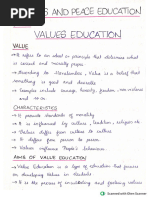 S AND PEACE EDUCATION
VALUES EDUCATION
VALUE
→ It refers to an ideal or principle that determines what is correct and morally proper.
→ According to Kanalandar, Value is a belief that something is good and desirable.
→ Examples include courage, honesty, freedom, non-violence and so on.
CHARACTERISTICS
→ It provide standards of morality.
→ It is influenced by culture, tradition, religion etc.
→ It is different from culture to culture and person to person.
→ Values influence People's behaviour.
AIMS OF VALUE EDUCATION
→ Value Education is a type of education that focuses on developing Values in Students.
→ It is the process of inculcating and putting values
Scanned with Oken Scanner